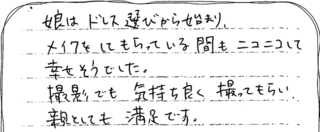 娘は ドレス選びから始まり、
メイクをしてもらっている間も ニコニコして
幸せそうでした。
撮影でも 気持ち良く 撮ってもらい、
親としても 満足です。